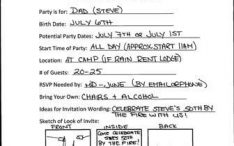 Party is for: DAD (STEVE)
Birth Date: JULY 6TH
Potential Party Dates: JULY 7TH OR JULY 1ST
Start Time of Party: ALL DAY (APPROX START 11AM)
Location: AT CAMP (IF RAIN RENT LODGE)
# of Guests: 20-25
RSVP Needed by: MID-JUNE (BY EMAIL OR PHONE)
Bring Your Own: CHAIRS + ALCOHOL
Ideas for Invitation Wording: CELEBRATE STEVE'S 50TH BY
THE FIRE WITH US!
Sketch of Look of Invite:
FRONT INSIDE BACK
COME CELEBRATE
BY THE FIRE!